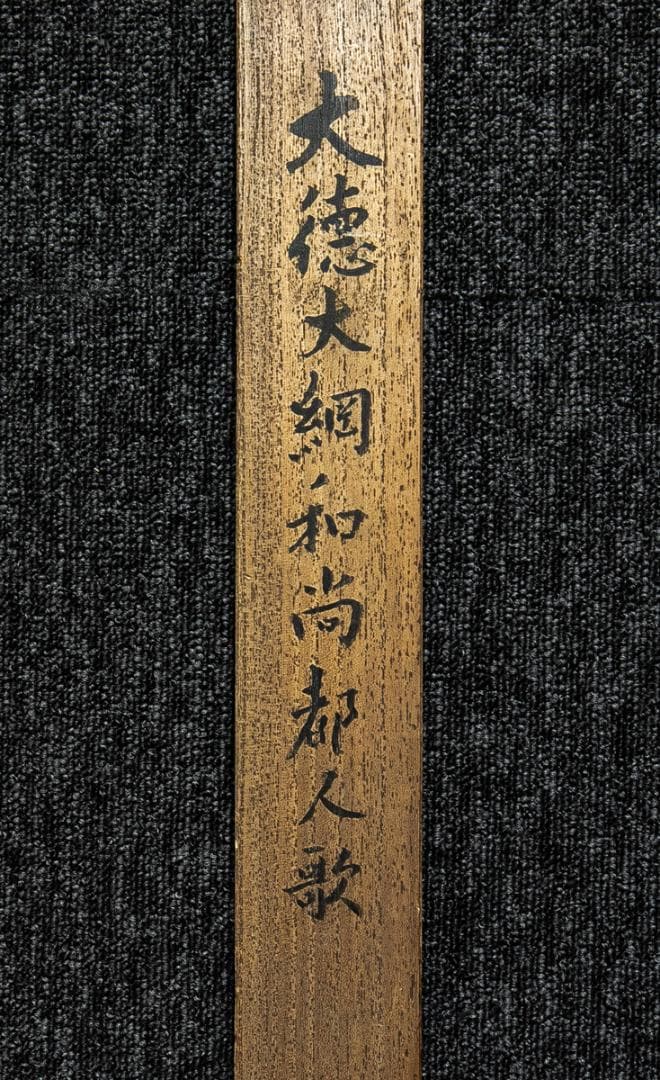 大徳大綱和尚都人歌